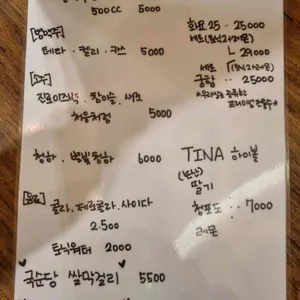 500cc 5000
[병맥주]
테라 · 켈리 · 카스 5000
[소주]
진로이즈백 · 참이슬 · 새로
처음처럼 5000
청하 · 별빛청하 6000
[음료]
콜라 · 제로콜라 · 사이다
2.500
토닉워터 2000
국순당 쌀막걸리 5500
화요25 ·· 25000
세트(토닉2+레몬)
ㄴ 29000
세트 (토닉2+레몬)
·· 25000
TINA 하이볼
딸기
청포도 ·· 7000
레몬